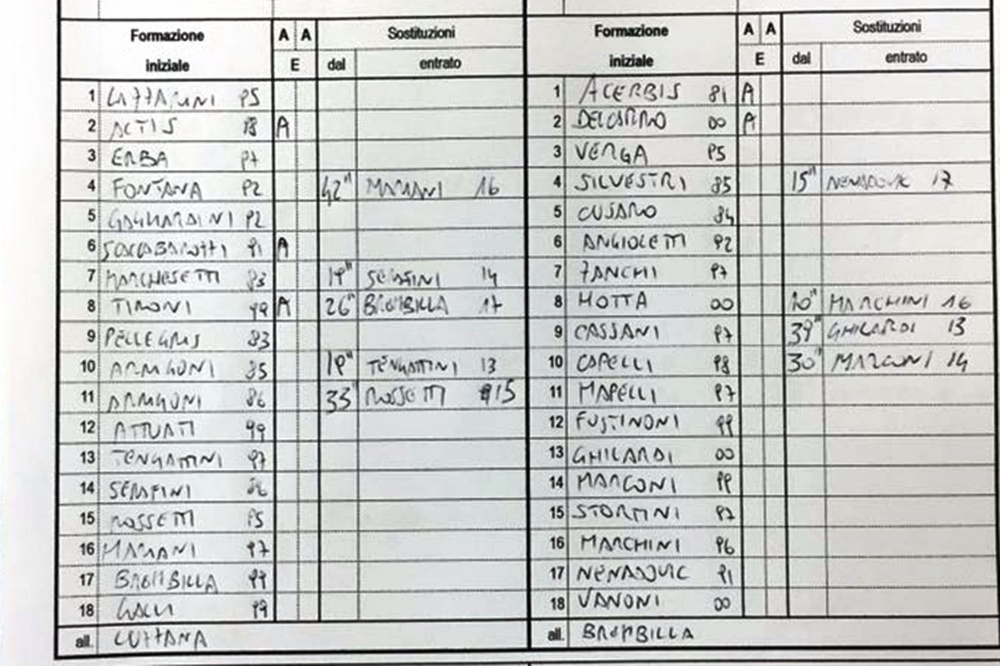 Formazione iniziale A A E Sostituzioni dal entrato
1 LAZZARINI 95
2 ACTIS 88 A
3 ERBA 97
4 FONTANA 92 42" MAMANI 16
5 GAGLIARDINI 92
6 SCACCABAROTTI 91 A
7 MARCHESETTI 93 19" SERAFINI 14
8 TIRONI 99 A 26" BREMBILLA 17
9 PELLEGRIS 83
10 ARAGONI 85 19" TENGATTINI 13
11 ARAGONI 86 33" ROSSETTI 15
12 ATTUATI 99
13 TENGATTINI 97
14 SERAFINI
15 ROSSETTI 95
16 MAMANI 97
17 BREMBILLA 99
18 GALLI 99
all. LUZZANA
Formazione iniziale A A E Sostituzioni dal entrato
1 ACERBIS 81 A
2 DELCARRO 00 A
3 VERGA 95
4 SILVESTRI 85 15" NENADOVIC 17
5 CUSARO 84
6 ANGIOLETTI 92
7 ZANCHI 97
8 MOTTA 00 10" MARCHINI 16
9 CASSANI 97 39" GHILARDI 13
10 CAPELLI 98 30" MARCONI 14
11 MAPELLI 97
12 FUSTINONI 99
13 GHILARDI 00
14 MARCONI 99
15 STORTINI 97
16 MARCHINI 96
17 NENADOVIC 91
18 VANONI 00
all. BREMBILLA